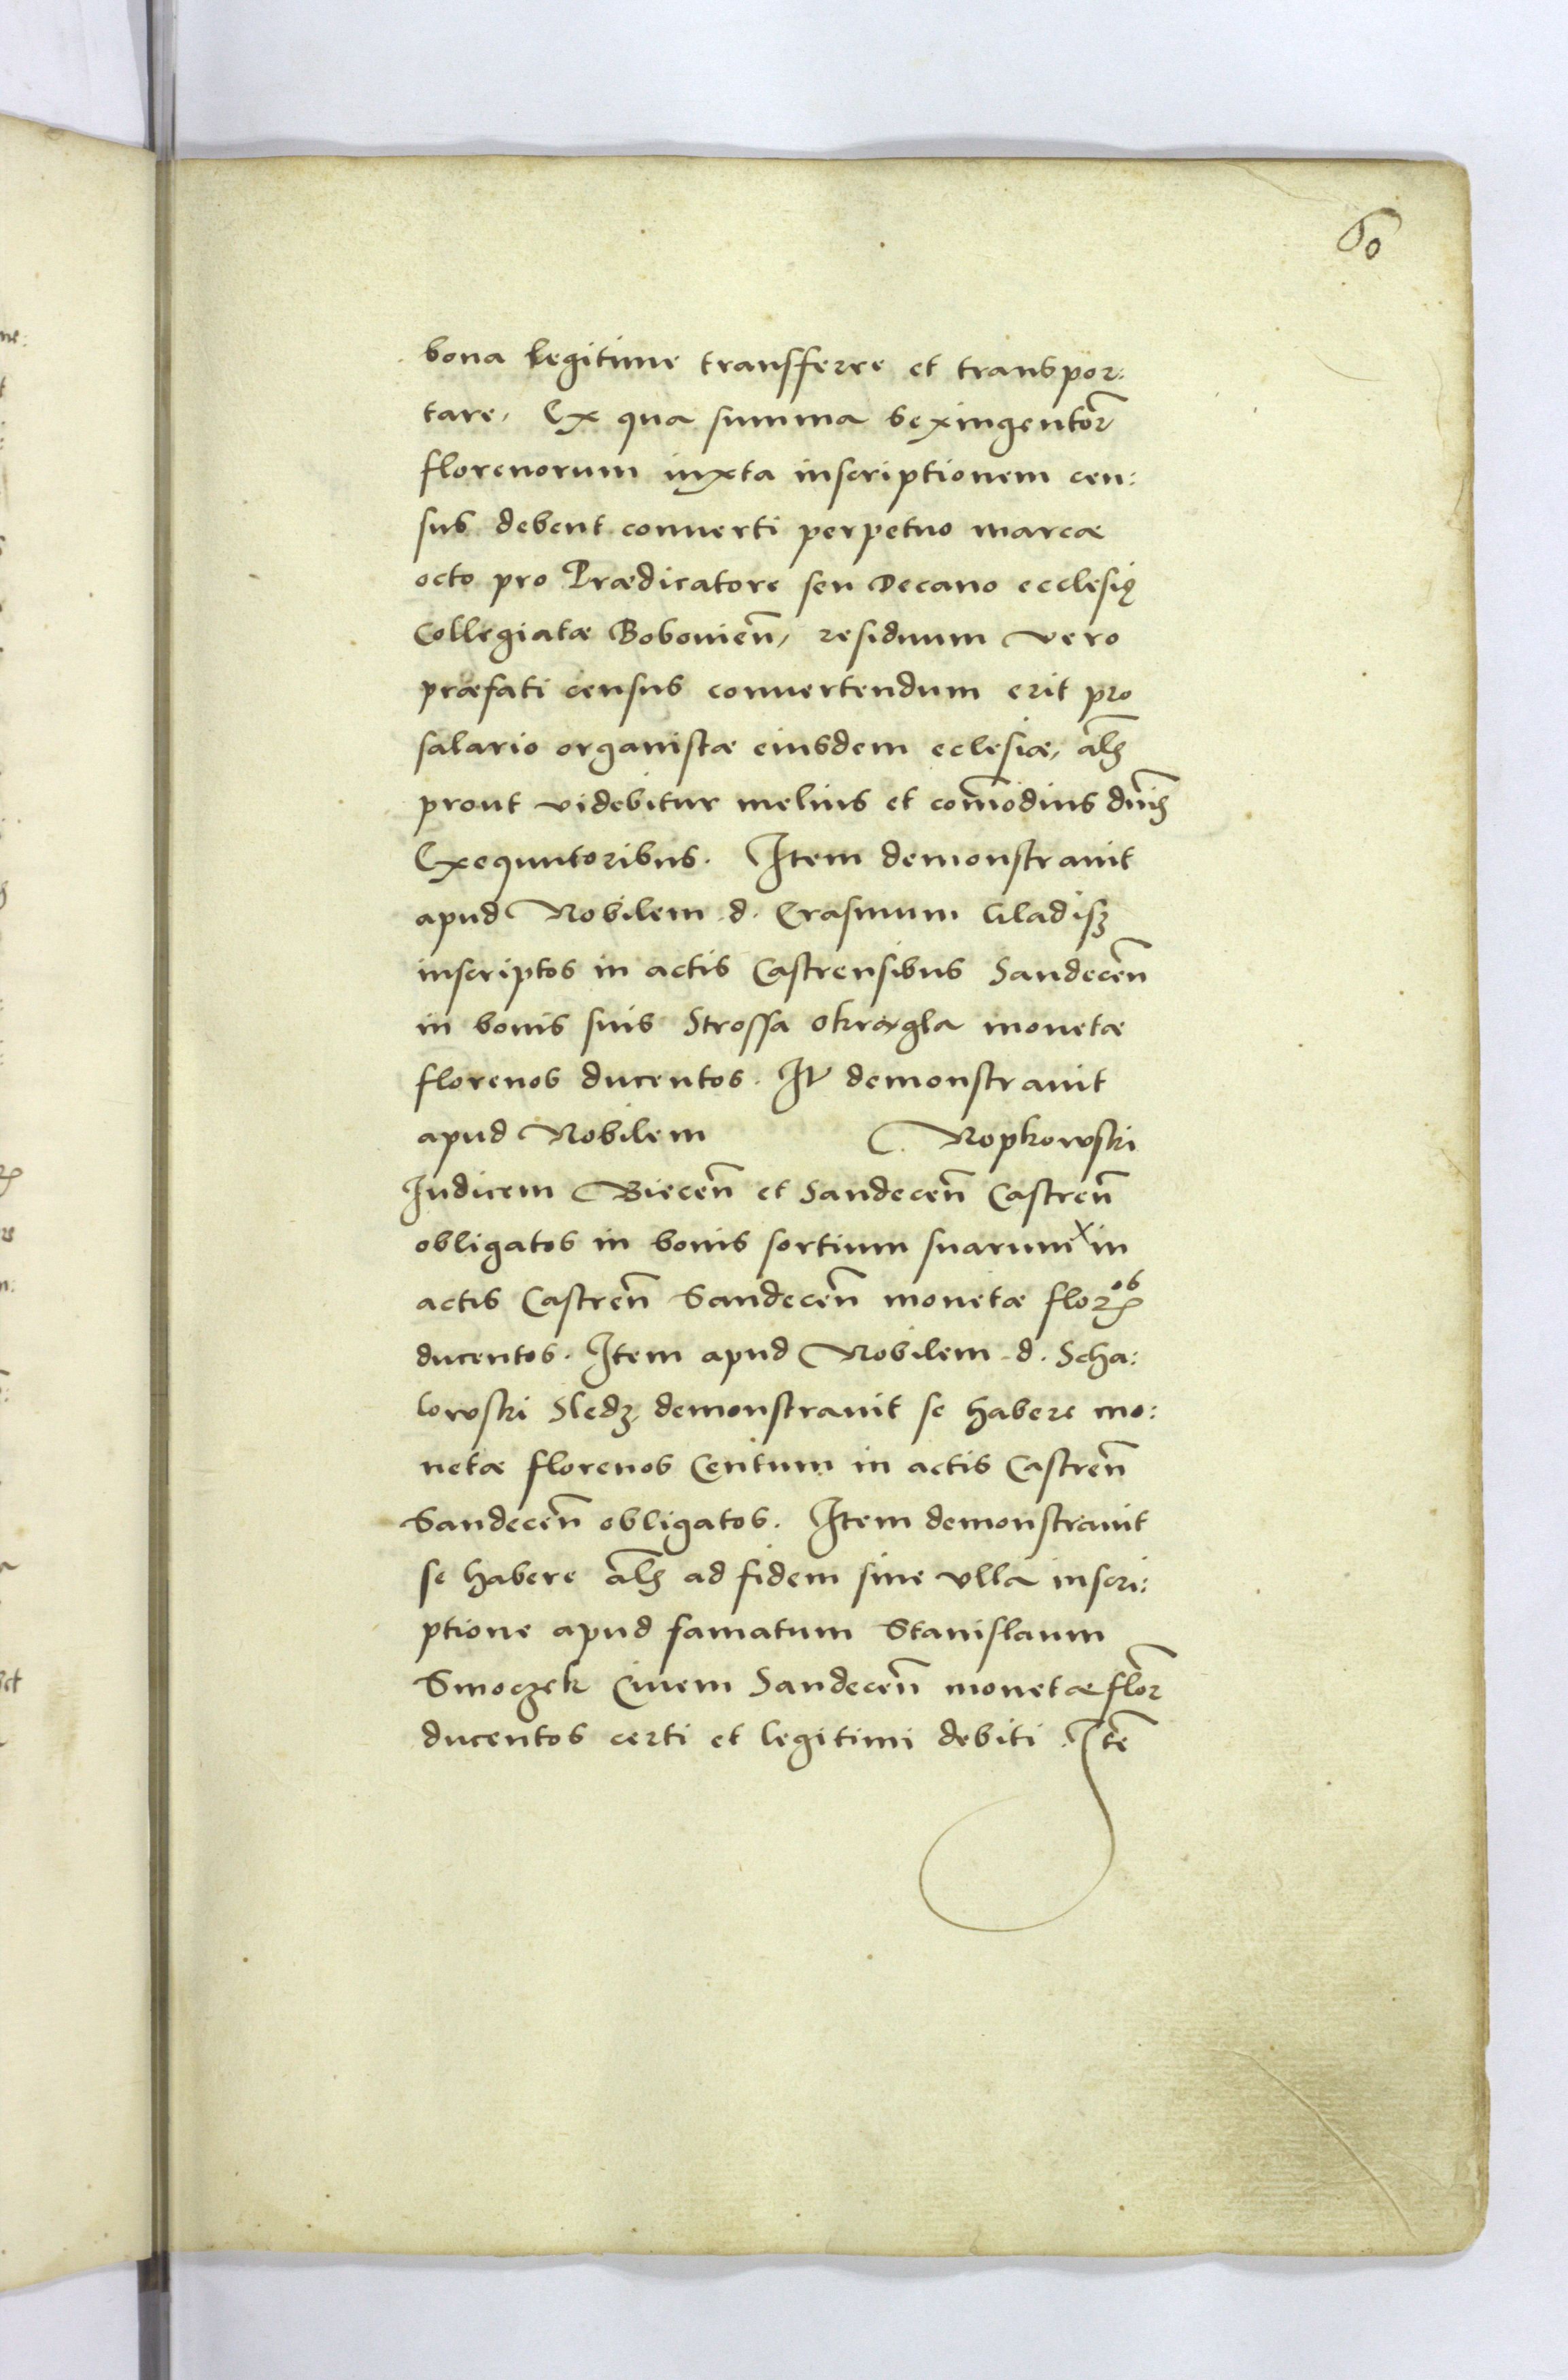 60
bona legitime transfferre et transpor:
tare, Ex qua summa sexingentor̃
florenorum iuxta inscriptionem cen:
sus debent conuerti perpetuo marcæ
octo pro Prædicatore seu Decano ecclesię
Collegiatæ Bobouien̄, residuum vero
præfati census conuertendum erit pro
salario organistæ eiusdem eclesiæ, al̃s
prout videbitur melius et com̃odius dñis
Exequutoribus. Item demonstrauit
apud Nobilem d. Erasmum Gladisz
inscriptos in actis Castrensibus Sandecen̄
in bonis suis Strossa okrągla monetæ
florenos ducentos. It̃ demonstrauit
apud Nobilem Ropkowski
Iudicem Biecen̄ et Sandecen̄ Castren̄
obligatos in bonis sortium suarum x in
actis Castren̄ Sandecen̄ monetæ floꝝos
ducentos. Item apud Nobilem d. Scha:
lowski Sledz demonstrauit se habere mo:
netæ florenos Centum in actis Castren̄
Sandecen̄ obligatos. Item demonstrauit
se habere al̃s ad fidem sine vlla inscri:
ptione apud famatum Stanislaum
Smoczek Ciuem Sandecen̄ monetæ flor̃
ducentos certi et legitimi debiti. Itē